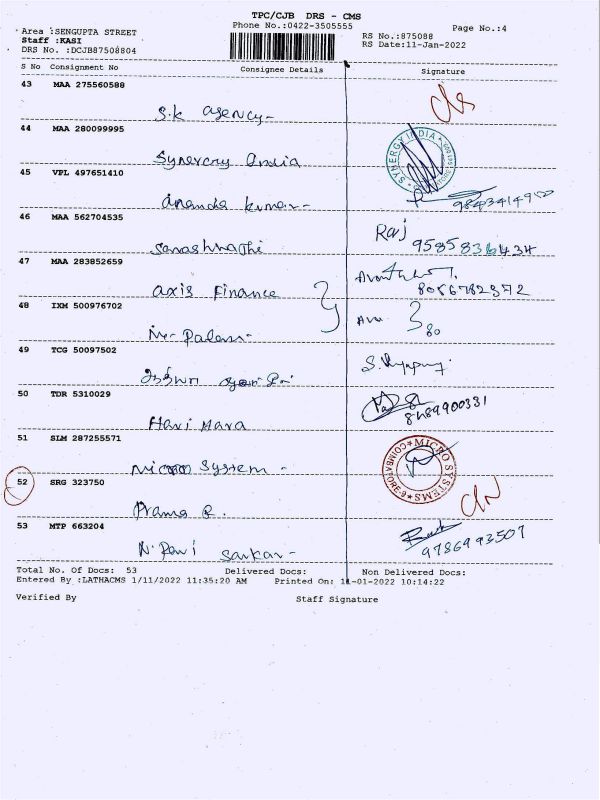 TPC/CJB DRS - CMS
Phone No.:0422-3505555
Page No.:4
Area :SENGUPTA STREET
Staff :KASI
DRS No. :DCJB87508804
RS No.:875088
RS Date:11-Jan-2022
S No Consignment No Consignee Details Signature
43 MAA 275560588
S.K agency-
44 MAA 280099995
Synergy India
SYNERGY INDIA
45 VPL 497651410
Ananda kumar-
46 MAA 562704535
Raj
9585836434
47 MAA 283852659
axis Finance
8056782372
48 IXM 500976702
80
49 TCG 50097502
50 TDR 5310029
Hari Hara
8489900331
51 SLM 287255571
Micro System -
MICRO SYSTEMS
COIMBATORE-9
52 SRG 323750
53 MTP 663204
N. Ravi Sankar-
9786993507
Total No. Of Docs: 53 Delivered Docs: Non Delivered Docs:
Entered By :LATHACMS 1/11/2022 11:35:20 AM Printed On: 11-01-2022 10:14:22
Verified By Staff Signature